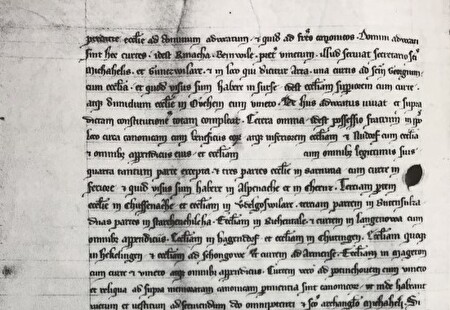 predicte ecclie ad dominum aduocatum . & quid ad fres canonicos . Domini aduocati
sint hec curtes . idest Rinacha . Beinwile . pret vinetum . illud seruat secretario sci
Michahelis . et Gunezwilare . & in loco qui dicitur Arra . una curtis ad scm
cum ecclia . et quod visus sum habere in Surse . idest eccliam superiorem cum curte .
atq; dimidium ecclie in Ovcheim cum vineto . Ut hiis aduocatus viuat et supra
dictam constitutionem totam compleat . Cetera omnia . idest possessio fratrum in ipso
loco circa canonicam cum beneficiis atq; inferiorem eccliam & Nudorf cum ecclia
& omnibz appendiciis eius . et eccliam cum omnibz legitimis suis
quarta tantum parte excepta . & tres partes ecclie in Sarnuna cum curte in
& quid visus sum habere in Alpenache et in Cherne . Terciam partem
ecclie in Chussenache . et eccliam in Vdelgoswilare . terciam partem in Buttensulza
duas partes in Starcheuchilcha . Eccliam in Richentale . & curtem in Langenowa cum
omnibz appendiciis . Eccliam in Hagendorf et eccliam in Chuttingen . Eccliam quoq;
in Hekelingen . & eccliam ad Sehongowe . et curtem ad Armense . Eccliam in Mageton
cum curte & vineto atq; omnibz appendiciis . Curtem vero ad cum vineto
et reliqua ad supra memoratam canonicam pertinentia sint canonicorum . ut inde habeant
victum et vestitum ad seruiendum deo omnipotenti & sco archanglo Michaheli . Si